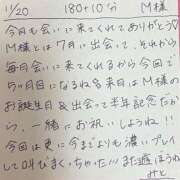 11/20 180+10分 M様
今月も会いに来てくれてありがとう♡
M様とは7月に出会って、それから
毎月会いに来てくれるから今回で
5か月目になるね 来月はM様の
お誕生日&出会って半年記念だか
ら、一緒にお祝いしようね!!
今回は更に今までよりも濃いプレイ
して叫びまくっちゃった!!! また遊ぼうね
みと